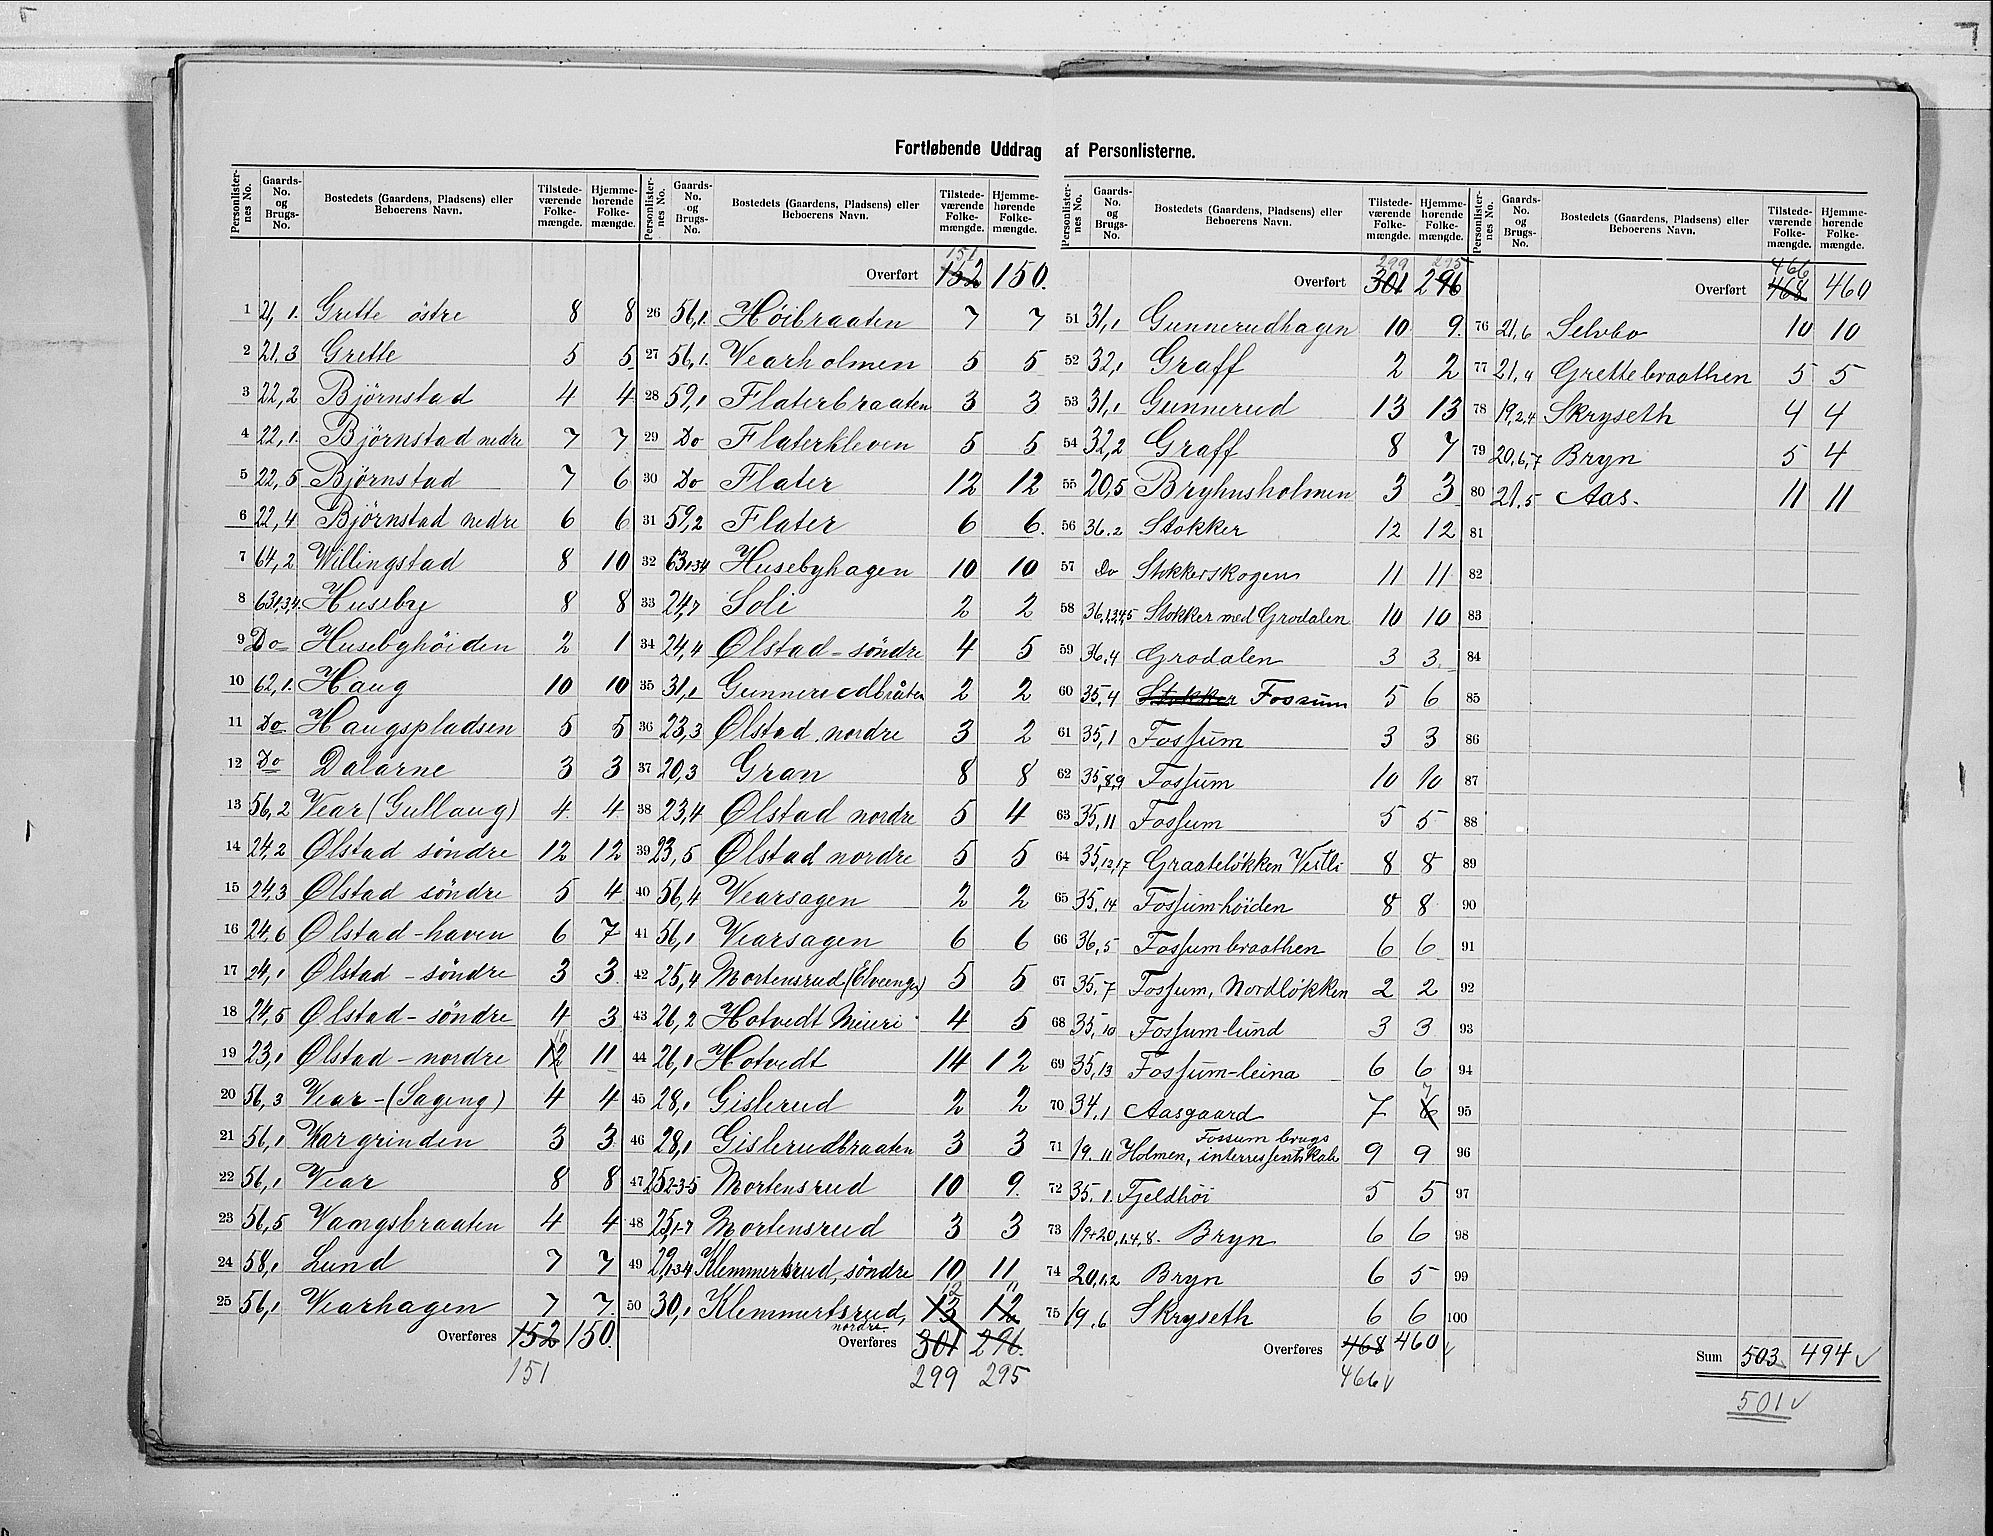 Fortløbende Uddrag af Personlisterne.
Personlisternes No. Gaards-No. og Brugs-No. Bostedets (Gaardens, Pladsens) eller Beboerens Navn. Tilstedeværende Folkemængde. Hjemmehørende Folkemængde.
1 21, 1. Grette östre 8 8
2 21.3 Grette 5 5
3 22,2 Björnstad 4 4
4 22,1. Björnstad nedre 7 7
5 22,5 Björnstad 7 6
6 22,4 Björnstad nedre 6 6
7 64,2 Willingstad 8 10
8 63,1,3,4. Huseby 8 8
9 Do Husebyhöiden 2 1
10 62,1. Haug 10 10
11 Do Haugspladsen 5 5
12 Do Dalarne 3 3
13 56,2 Vear (Gullaug) 4 4
14 24,2 Ølstad söndre 12 12
15 24,3 Ølstad söndre 5 4
16 24,6 Ølstad-haven 6 7
17 24,1 Ølstad-söndre 3 3
18 24,5 Ølstad-söndre 4 3
19 23,1 Ølstad-nordre 12 11 11
20 56,3 Vear-(Sageng) 4 4
21 56,1 Vargrinden 3 3
22 56,1 Vear 8 8
23 56,5 Vangsbraaten 4 4
24 58,1 Lund 7 7
25 56,1 Vearhagen 7 7
Overføres 152 150.
151
Personlisternes No. Gaards-No. og Brugs-No. Bostedets (Gaardens, Pladsens) eller Beboerens Navn. Tilstedeværende Folkemængde. Hjemmehørende Folkemængde.
151
Overført 152 150.
26 56,1. Høibraaten 7 7
27 56,1. Vearholmen 5 5
28 59,1 Flaterbraaten 3 3
29 Do Flaterkleven 5 5
30 Do Flater 12 12
31 59,2 Flater 6 6.
32 63,1,3,4 Husebyhagen 10 10
33 24,7 Soli 2 2
34 24,4 Ølstad-söndre 4 5
35 31,1 Gunnerudbråten 2 2
36 23,3 Ølstad nordre 3 2
37 20,3 Gran 8 8
38 23,4 Ølstad nordre 5 4
39 23,5 Ølstad nordre 5 5
40 56,4 Vearsagen 2 2
41 56,1 Vearsagen 6 6
42 25,4 Mortensrud (Elvenga) 5 5
43 26,2 Hotvedt Meieri 4 5
44 26,1 Hotvedt 14 12
45 28,1 Gislerud 2 2
46 28,1 Gislerudbraaten 3 3
47 25,2-3-5 Mortensrud 10 9.
48 25,1-7 Mortensrud 3 3
49 29,1-3-4 Klemmertsrud, söndre 10 11
50 30,1 Klemmertsrud, nordre. 13 12 12 11
Overføres 301 296.
299 295
Personlisternes No. Gaards-No. og Brugs-No. Bostedets (Gaardens, Pladsens) eller Beboerens Navn. Tilstedeværende Folkemængde. Hjemmehørende Folkemængde.
299 295
Overført 301 296
51 31,1 Gunnerudhagen 10 9.
52 32,1 Graff 2 2
53 31,1 Gunnerud 13 13
54 32,2 Graff 8 7
55 20,5 Bryhnsholmen 3 3
56 36.2 Stokker 12 12
57 Do Stokkerskogen 11 11
58 36,1,3,4,5 Stokker med Grodalen 10 10
59 36.4 Grodalen 3 3.
60 35,4 Stokker Fossum 5 6
61 35,1 Fossum 3 3
62 35,8,9 Fossum 10 10
63 35,11 Fossum 5 5
64 35,12,17 Graateløkken Vestli 8 8
65 35,14 Fossum-höiden 8 8
66 36,5 Fossumbraathen 6 6
67 35,7 Fossum, Nordløkken 2 2
68 35,10 Fossum-lund 3 3
69 35,13 Fossum-leina 6 6
70 34,1 Aasgaard 7 6 7
71 19.11 Holmen, Fossum brugs interressentskab 9 9
72 35.1. Fjeldhöi 5 5
73 19+20,1.4,8. Bryn 6 6
74 20,1,2 Bryn 6 5
75 19.6 Skryseth 6 6
Overføres 468 460 v
466 v
Personlisternes No. Gaards-No. og Brugs-No. Bostedets (Gaardens, Pladsens) eller Beboerens Navn. Tilstedeværende Folkemængde. Hjemmehørende Folkemængde.
466
Overført 468 460
76 21,6 Selvbo 10 10
77 21,4 Grettebraathen 5 5
78 19,2,4 Skryseth 4 4
79 20,6,7 Bryn 5 4
80 21.5 Aas. 11 11
81
82
83
84
85
86
87
88
89
90
91
92
93
94
95
96
97
98
99
100
Sum 503 494 v
501 v